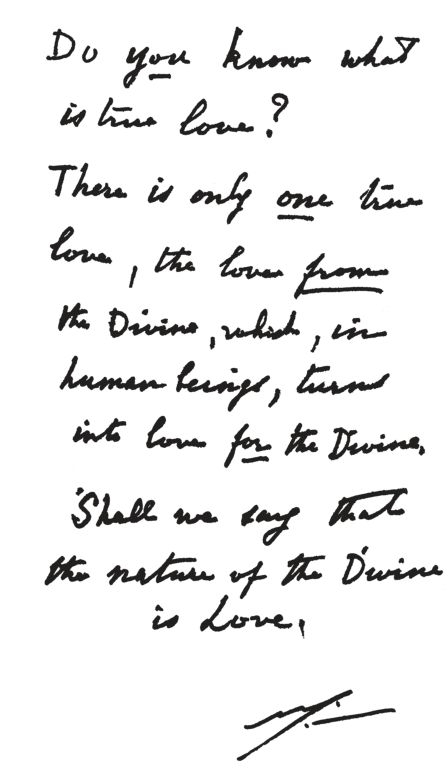 Do you know what
is true love?
There is only one true
love, the love from
the Divine, which, in
human beings, turns
into love for the Divine.
Shall we say that
the nature of the Divine
is Love.